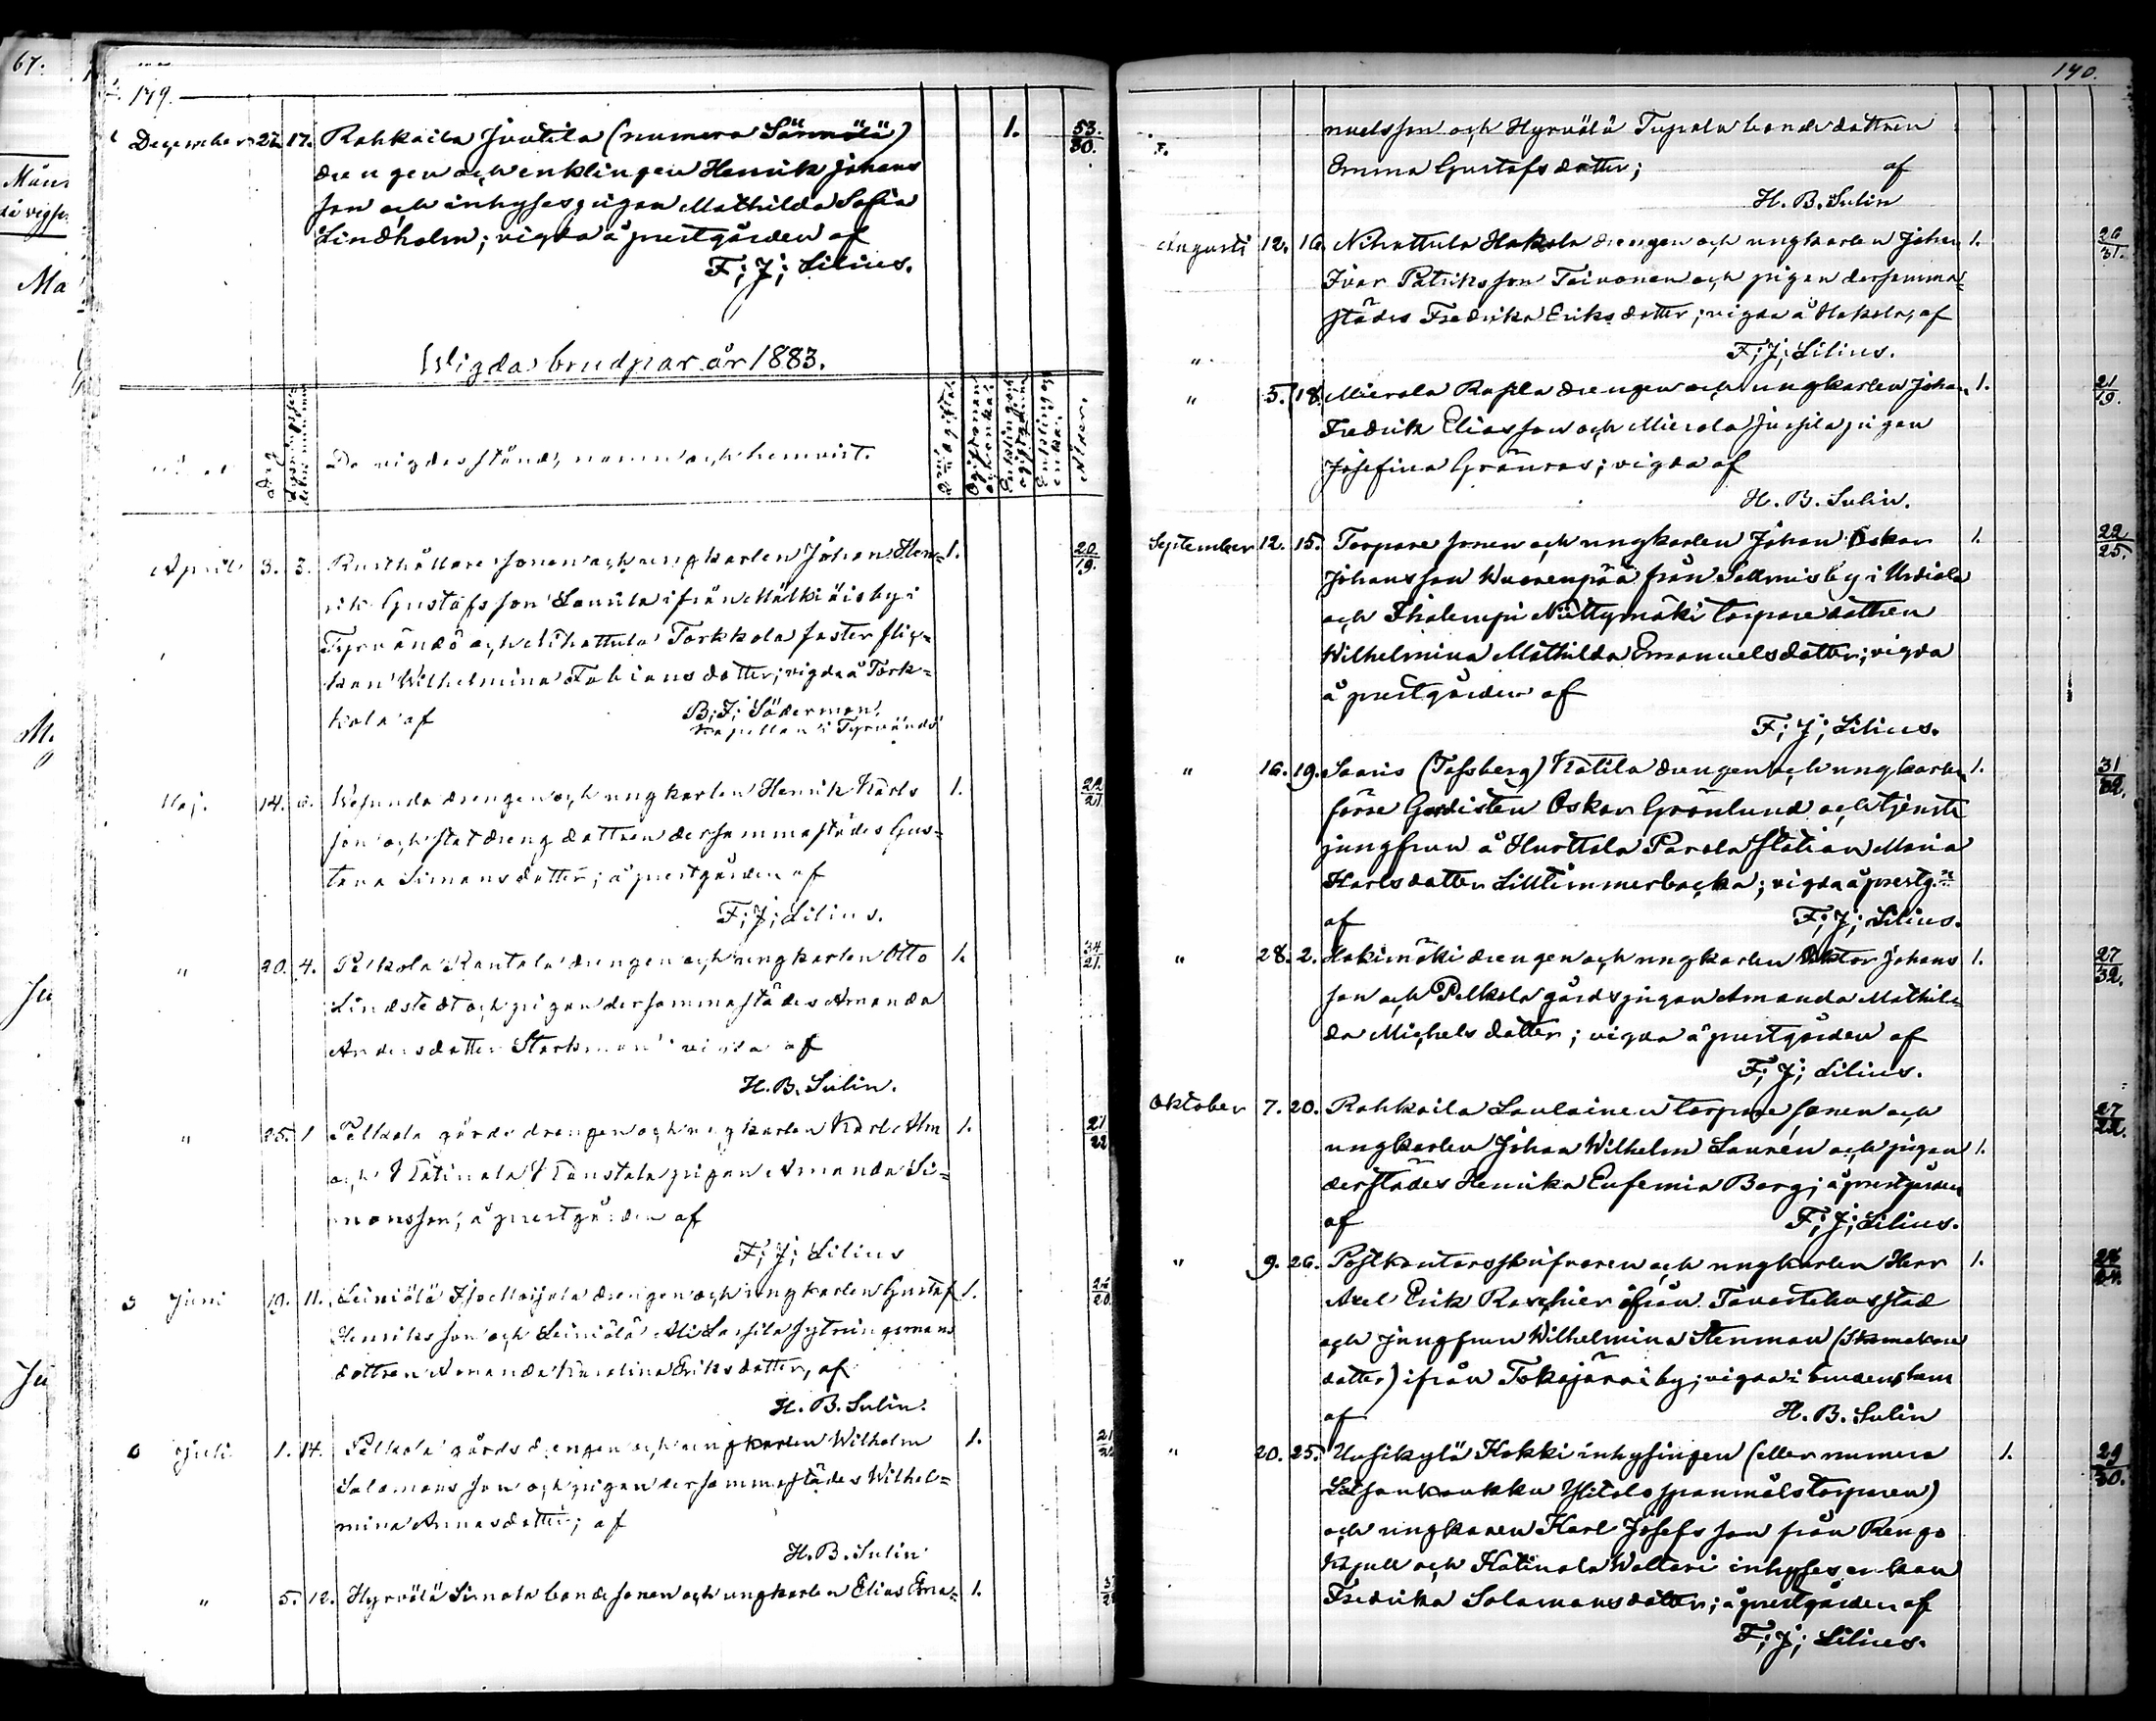 67.
149.
December 27. 17. Rahkoila Juutila (numera Sännölä) 1. 53/30.
drengen och enklingen Henrik Johans
son och inhysespigan Mathilda Sofia
Lindholm; vigda å prestgården af
F; J; Lilius.
Wigda brudpar år 1883.
De vigdas stånd, namn och hemvist.
Ålder.
April 3. 3. Rusthållare sonen och ungkarlen Johan Hen= 1. 20/19.
rik Gustafsson Laurila ifrån Mälkiäis by i
Tyrvändö och Nihattula Torkkola foster flic=
kan Wilhelmina Fabiansdotter; vigda å Tork=
kola af B; F; Söderman,
Kapellan i Tyrvändö
Maj. 14. Wesunda drengen och ungkarlen Henrik Karls 1. 22/21.
son och statdreng dottren dersammastädes Gus=
tava Simonsdotter; å prestgården af
F; J; Lilius.
" 20. 4. Pelkola Rantala drengen och ungkarlen Otto 1. 34/21.
Lindstedt och pigan dersammastädes Amanda
Andersdotter Starkman; vigda af
H. B. Sulin.
" 25. 1 Pelkola gårds drengen och ungkarlen Karl Alm 1. 21/22
och Katinala Knustala pigan Amanda Si=
monsson; å prestgården af
F; J; Lilius
Juni 19. 11. Leiniälä Iso Maijala drengen och ungkarlen Gustaf 1.
Henriksson och Leiniälä Ali Lassila sytningsmans
dottren Amanda Karolina Eriksdotter, af
H. B. Sulin.
Juli 1. 14. Pelkola gårds drengen och ungkarlen Wilhelm 1.
Salomonsson och pigan dersammastädes Wilhel=
mina Annasdotter; af
H. B. Sulin
" 5. 12. Hyrvälä Simola bondesonen och ungkarlen Elias Ema= 1.
140.
nuelsson och Hyrvälä Tupala bondedottren
Emma Gustafsdotter; af
H. B. Sulin
Augusti 12. 16. Nihattula Hakola drengen och ungkarlen Johan 1. 26/31.
Ivar Patriksson Toivonen och pigan dersamma=
städes Fredrika Eriksdotter; vigda å Hakola, af
F; J; Lilius.
" 5. 18. Mierola Rapila drengen och ungkarlen Johan 1. 21/19.
Fredrik Eliasson och Mierola Jussila pigan
Josefina Granroos; vigda af
H. B. Sulin.
September 12. 15. Torpare sonen och ungkarlen Johan Oskar 1. 22/25.
Johansson Wuorenpää från Salmis by i Urdiala
och Ihalempi Niittymäki torparedottren
Wilhelmina Mathilda Emanuelsdotter; vigda
å prestgården af
F; J; Lilius.
" 16. 19. Saaris (Tafsberg) Katila drengen och ungkarlen 1. 31/32.
förre Gardisten Oskar Grönlund och tjenste
jungfrun å Hurttala Parola station Maria
Karlsdotter Lilltimmerbacka; vigda å prestg:n
af F; J; Lilius.
" 28. 2. Hakimäki drengen och ungkarlen Viktor Johans 1. 27/32.
son och Pelkola gårds pigan Amanda Mathil=
da Michelsdotter; vigda å prestgården af
F; J; Lilius.
Oktober 7. 20. Rahkoila Laulainen torpare sonen och 27/22.
ungkarlen Johan Wilhelm Laurén och pigan 1.
derstädes Henrika Eufemia Borg; å prestgården
af F; J; Lilius.
" 9. 26. Postkontorsskrifvaren och ungkarlen Herr 1.
Axel Erik Raschier ifrån Tavastehus stad
och jungfrun Wilhelmina Stenman (Skomakare
dotter) ifrån Tokajärvi by; vigda i brudens hem
af H. B. Sulin
" 20. 25. Uusikylä Kokki inhysingen (eller numera 1. 29/30.
Ylitalo spanmåls torparen)
och ungkaren Karl Josefsson från Rengo
Kapell och Katinala Walteri inhyses enkan
Fredrika Salomonsdotter; å prestgården af
F; J; Lilius.